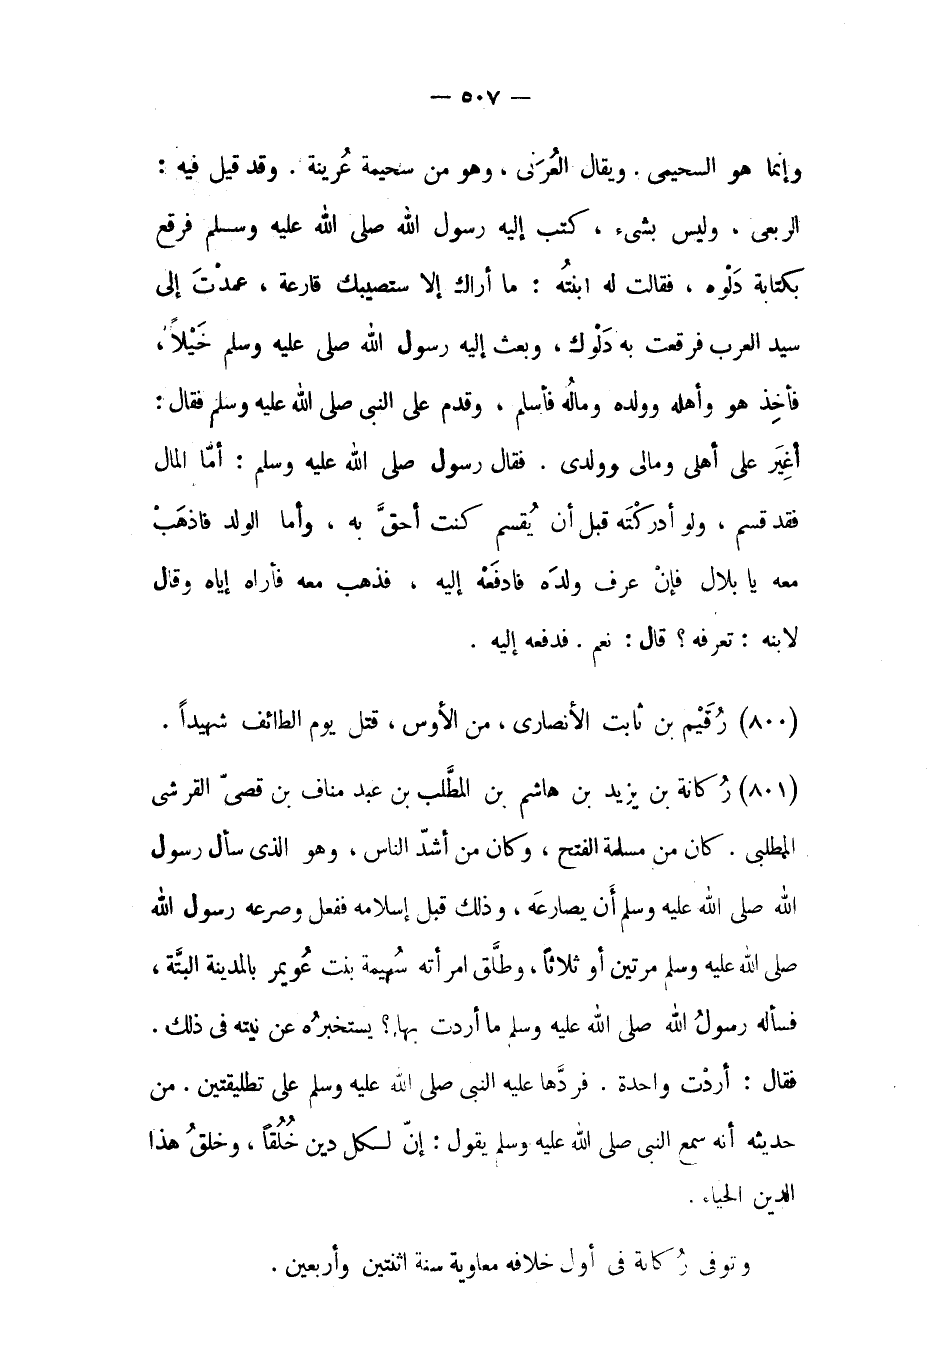 — ٥٠٧ —
وإنما هو السحيمى . ويقال العُرَنى ، وهو من سحيمة عُرينة . وقد قيل فيه :
الربعى ، وليس بشىء ، كتب إليه رسول الله صلى الله عليه وسلم فرقع
بكتابة دَلْوه ، فقالت له ابنتُه : ما أراك إلا ستصيبك قارعة ، عمدْتَ إلى
سيد العرب فرقعت به دَلْوك ، وبعث إليه رسول الله صلى عليه وسلم خَيْلاً ،
فأخِذ هو وأهله وولده ومالُه فأسلم ، وقدم على النبى صلى الله عليه وسلم فقال :
أغِيَر على أهلى ومالى وولدى . فقال رسول صلى الله عليه وسلم : أمّا المال
فقد قسم ، ولو أدركْتَه قبل أن يُقسم كنت أحقَّ به ، وأما الولد فاذهَبْ
معه يا بلال فإنْ عرف ولدَه فادفَعْه إليه ، فذهب معه فأراه إياه وقال
لابنه : تعرفه ؟ قال : نعم . فدفعه إليه .
(٨٠٠) رُقَيْم بن ثابت الأنصارى ، من الأوس ، قتل يوم الطائف شهيداً .
(٨٠١) رُكانة بن يزيد بن هاشم بن المطَّلب بن عبد مناف بن قصىّ القرشى
المطلبى . كان من مسلمة الفتح ، وكان من أشدّ الناس ، وهو الذى سأل رسول
الله صلى الله عليه وسلم أن يصارعَه ، وذلك قبل إسلامه ففعل وصرعه رسول الله
صلى الله عليه وسلم مرتين أو ثلاثاً ، وطلَّق امرأته سُهيمة بنت عُويمر بالمدينة البتَّة ،
فسأله رسولُ الله صلى الله عليه وسلم ما أردت بها ؟ يستخبرُه عن نيته فى ذلك .
فقال : أردْت واحدة . فردَّها عليه النبى صلى الله عليه وسلم على تطليقتين . من
حديثه أنه سمع النبى صلى الله عليه وسلم يقول : إنّ لكل دين خُلُقاً ، وخلقُ هذا
الدين الحياء .
وتوفى رُكانة فى أول خلافه معاوية سنة اثنتين وأربعين .